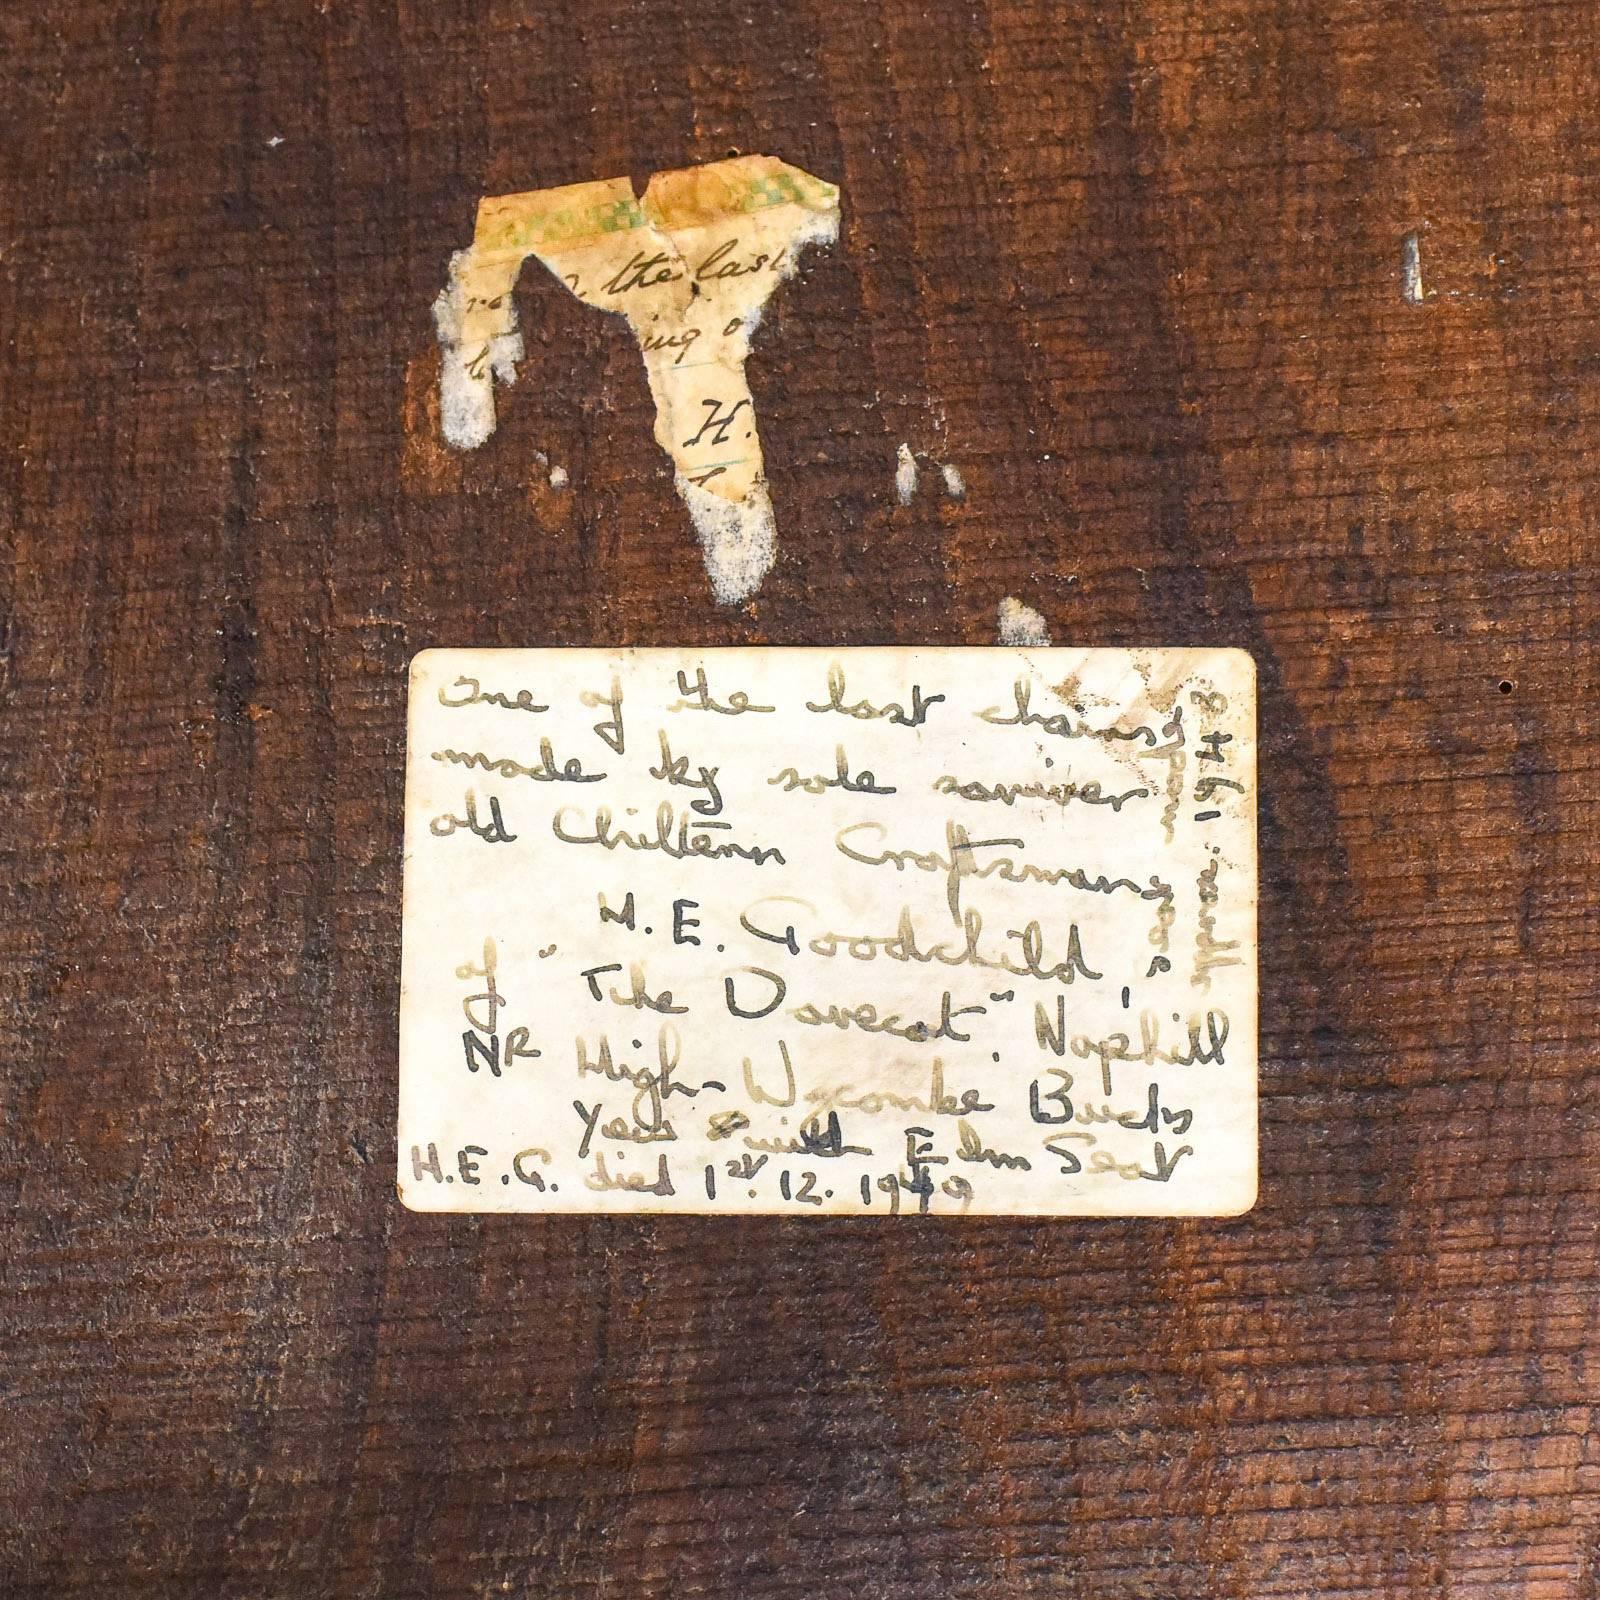 the last
ing o
H.
One of the last chairs
made by sole survivor
old Chiltern Craftsman
H. E. Goodchild,
of "The Dovecot", Naphill
NR High-Wycombe Bucks
Yew with Elm Seat
H.E.G. died 1st. 12. 1949
approx. 1948